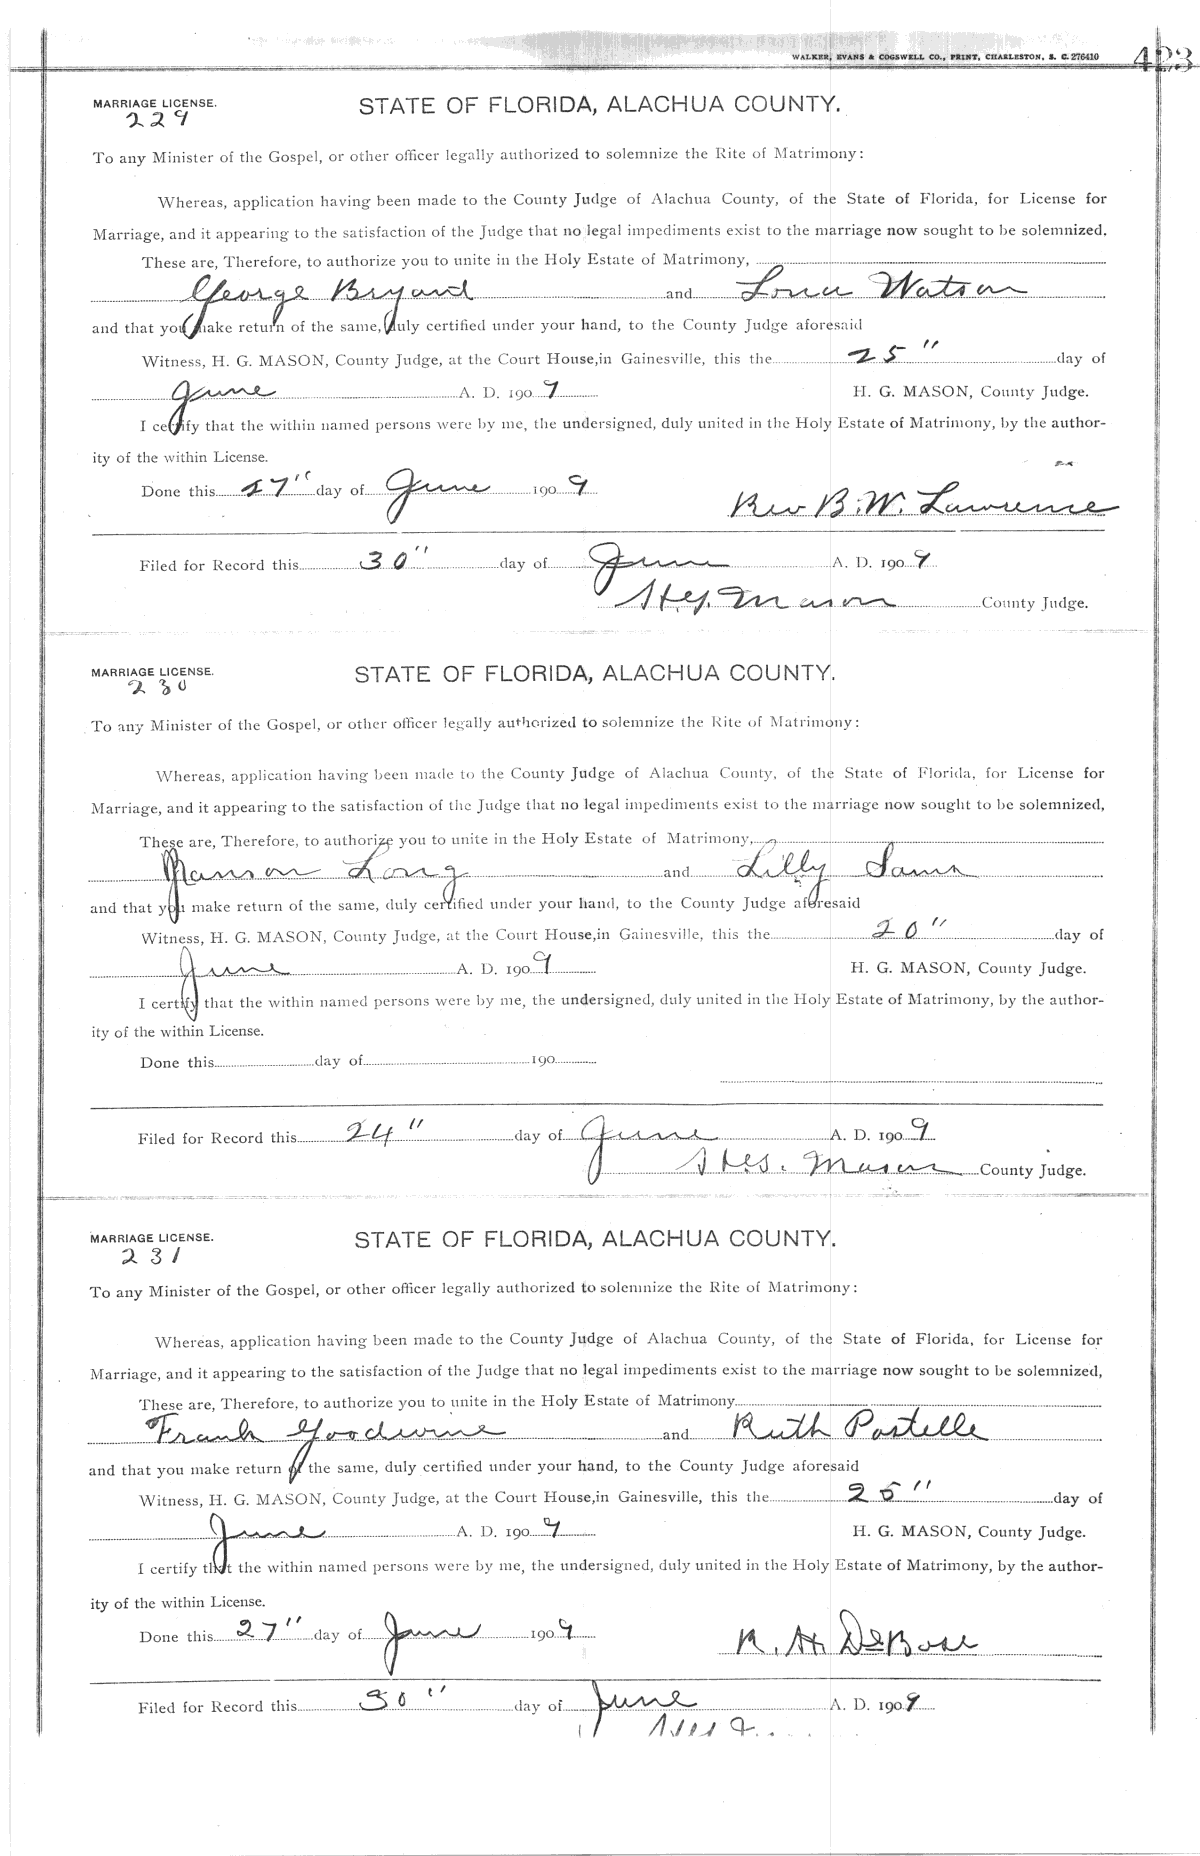 WALKER, EVANS & COGSWELL CO., PRINT, CHARLESTON, S. C. 276410 423
MARRIAGE LICENSE.
229
STATE OF FLORIDA, ALACHUA COUNTY.
To any Minister of the Gospel, or other officer legally authorized to solemnize the Rite of Matrimony:
Whereas, application having been made to the County Judge of Alachua County, of the State of Florida, for License for
Marriage, and it appearing to the satisfaction of the Judge that no legal impediments exist to the marriage now sought to be solemnized.
These are, Therefore, to authorize you to unite in the Holy Estate of Matrimony,
George Bryant and Watson
and that you make return of the same, duly certified under your hand, to the County Judge aforesaid
Witness, H. G. MASON, County Judge, at the Court House, in Gainesville, this the 25" day of
June A. D. 1909 H. G. MASON, County Judge.
I certify that the within named persons were by me, the undersigned, duly united in the Holy Estate of Matrimony, by the author-
ity of the within License.
Done this 27" day of June 1909
Rev B. W. Lawrence
Filed for Record this 30" day of June A. D. 1909
H. G. Mason County Judge.
MARRIAGE LICENSE.
230
STATE OF FLORIDA, ALACHUA COUNTY.
To any Minister of the Gospel, or other officer legally authorized to solemnize the Rite of Matrimony:
Whereas, application having been made to the County Judge of Alachua County, of the State of Florida, for License for
Marriage, and it appearing to the satisfaction of the Judge that no legal impediments exist to the marriage now sought to be solemnized,
These are, Therefore, to authorize you to unite in the Holy Estate of Matrimony,
Manson Long and Lilly Sams
and that you make return of the same, duly certified under your hand, to the County Judge aforesaid
Witness, H. G. MASON, County Judge, at the Court House, in Gainesville, this the 20" day of
June A. D. 1909 H. G. MASON, County Judge.
I certify that the within named persons were by me, the undersigned, duly united in the Holy Estate of Matrimony, by the author-
ity of the within License.
Done this day of 190
Filed for Record this 24" day of June A. D. 1909
H. G. Mason County Judge.
MARRIAGE LICENSE.
231
STATE OF FLORIDA, ALACHUA COUNTY.
To any Minister of the Gospel, or other officer legally authorized to solemnize the Rite of Matrimony:
Whereas, application having been made to the County Judge of Alachua County, of the State of Florida, for License for
Marriage, and it appearing to the satisfaction of the Judge that no legal impediments exist to the marriage now sought to be solemnized,
These are, Therefore, to authorize you to unite in the Holy Estate of Matrimony
Frank Goodwine and Ruth Postelle
and that you make return of the same, duly certified under your hand, to the County Judge aforesaid
Witness, H. G. MASON, County Judge, at the Court House, in Gainesville, this the day of
June A. D. 1909 H. G. MASON, County Judge.
I certify that the within named persons were by me, the undersigned, duly united in the Holy Estate of Matrimony, by the author-
ity of the within License.
Done this 27" day of June 1909
R. H. DeBose
Filed for Record this 30" day of June A. D. 1909